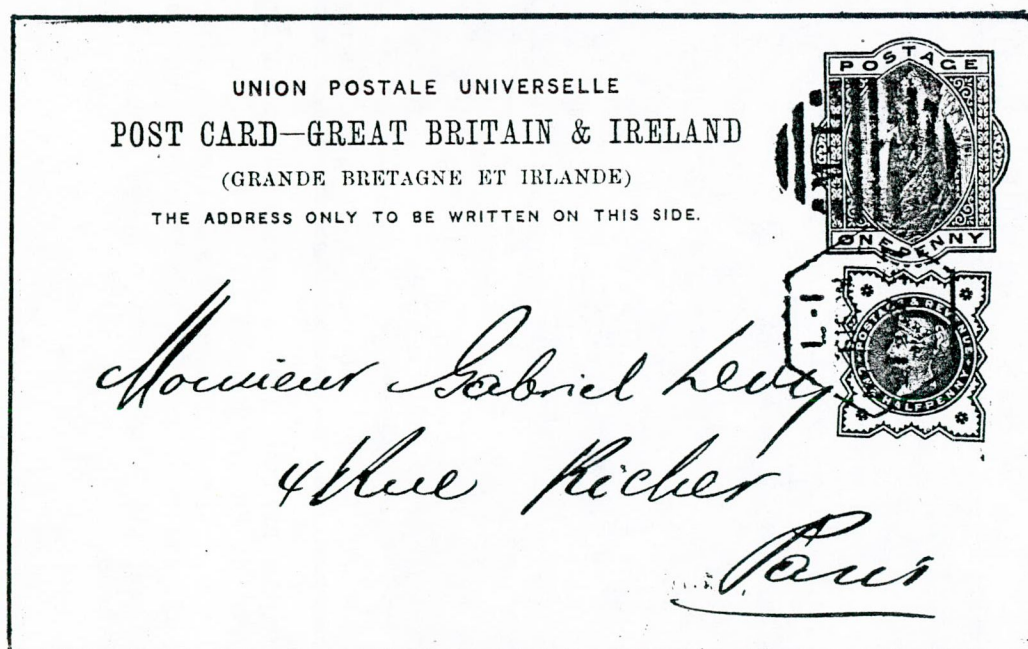 UNION POSTALE UNIVERSELLE
POST CARD—GREAT BRITAIN & IRELAND
(GRANDE BRETAGNE ET IRLANDE)
THE ADDRESS ONLY TO BE WRITTEN ON THIS SIDE.
POSTAGE
ONE PENNY
L-1
POSTAGE & REVENUE
HALFPENNY
Monsieur Gabriel Levy
4 Rue Richer
Paris